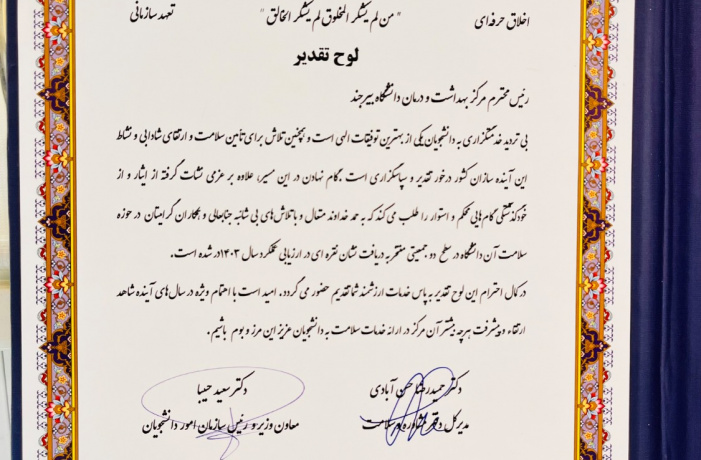 اخلاق حرفه‌ای " من لم یشکر المخلوق لم یشکر الخالق " تعهد سازمانی
لوح تقدیر
رئیس محترم مرکز بهداشت و درمان دانشگاه بیرجند
بی تردید خدمتگزاری به دانشجویان یکی از بهترین توفیقات الهی است و همچنین تلاش برای تأمین سلامت و ارتقای شادابی و نشاط
این آینده سازان کشور درخور تقدیر و سپاسگزاری است .گام نهادن در این مسیر، علاوه بر عزمی نشات گرفته از ایثار و از
خودگذشتگی گام هایی محکم و استوار را طلب می کند که به حمد خداوند متعال و با تلاش های بی شائبه جنابعالی و همکاران گرامیتان در حوزه
سلامت آن دانشگاه در سطح دو جمعیتی مفتخر به دریافت نشان نقره ای در ارزیابی عملکرد سال ۱۴۰۳ در شده است.
در کمال احترام این لوح تقدیر به پاس خدمات ارزشمند شما تقدیم حضور می گردد. امید است با اهتمام ویژه در سال های آینده شاهد
ارتقاء و پیشرفت هرچه بیشتر آن مرکز در ارائه خدمات سلامت به دانشجویان عزیز این مرز و بوم باشیم .
دکتر حمیدرضا حسن آبادی دکتر سعید حبیبا
مدیرکل دفتر مشاوره و سلامت معاون وزیر و رئیس سازمان امور دانشجویان